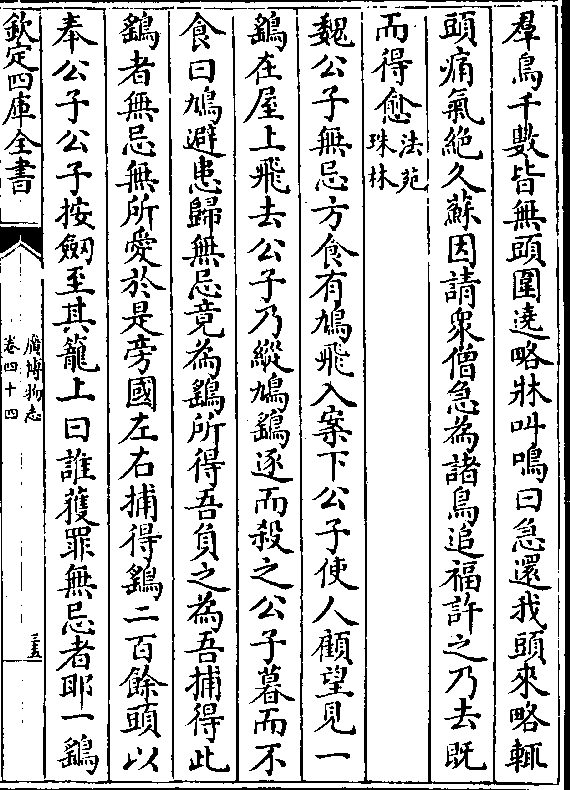 羣鳥千數皆無頭圍遶略牀叫鳴曰急還我頭來略輒
頭痛氣絶久蘇因請衆僧急為諸鳥追福許之乃去既
而得愈法苑
珠林
魏公子無忌方食有鳩飛入案下公子使人顧望見一
鷂在屋上飛去公子乃縱鳩鷂逐而殺之公子暮而不
食曰鳩避患歸無忌竟為鷂所得吾負之為吾捕得此
鷂者無忌無所愛於是旁國左右捕得鷂二百餘頭以
奉公子公子按劒至其籠上曰誰獲罪無忌者耶一鷂
欽定四庫全書
廣博物志
卷四十四
三五